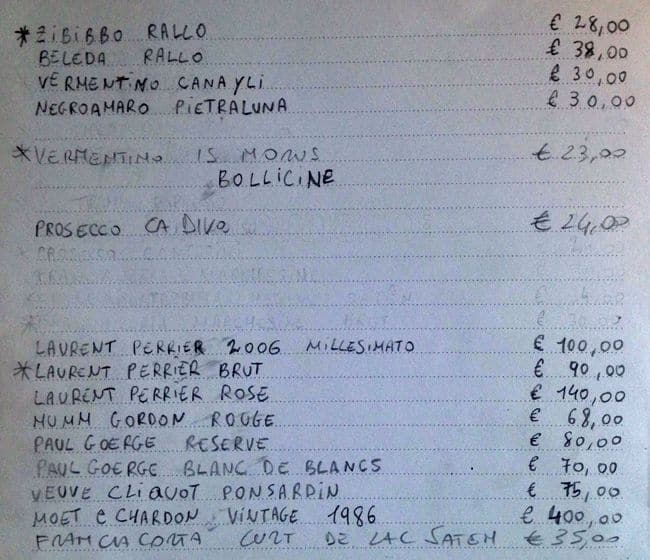 *ZIBIBBO RALLO € 28,00
BELEDA RALLO € 38,00
VERMENTINO CANAYLI € 30,00
NEGROAMARO PIETRALUNA € 30,00
*VERMENTINO IS MORUS € 23,00
BOLLICINE
PROSECCO CA DIVO € 24,00
LAURENT PERRIER 2006 MILLESIMATO € 100,00
*LAURENT PERRIER BRUT € 90,00
LAURENT PERRIER ROSE € 140,00
MUMM GORDON ROUGE € 68,00
PAUL GOERGE RESERVE € 80,00
PAUL GOERGE BLANC DE BLANCS € 70,00
VEUVE CLIQUOT PONSARDIN € 75,00
MOET E CHARDON VINTAGE 1986 € 400,00
FRANCIACORTA CURT DE LAC SATEN € 35,00